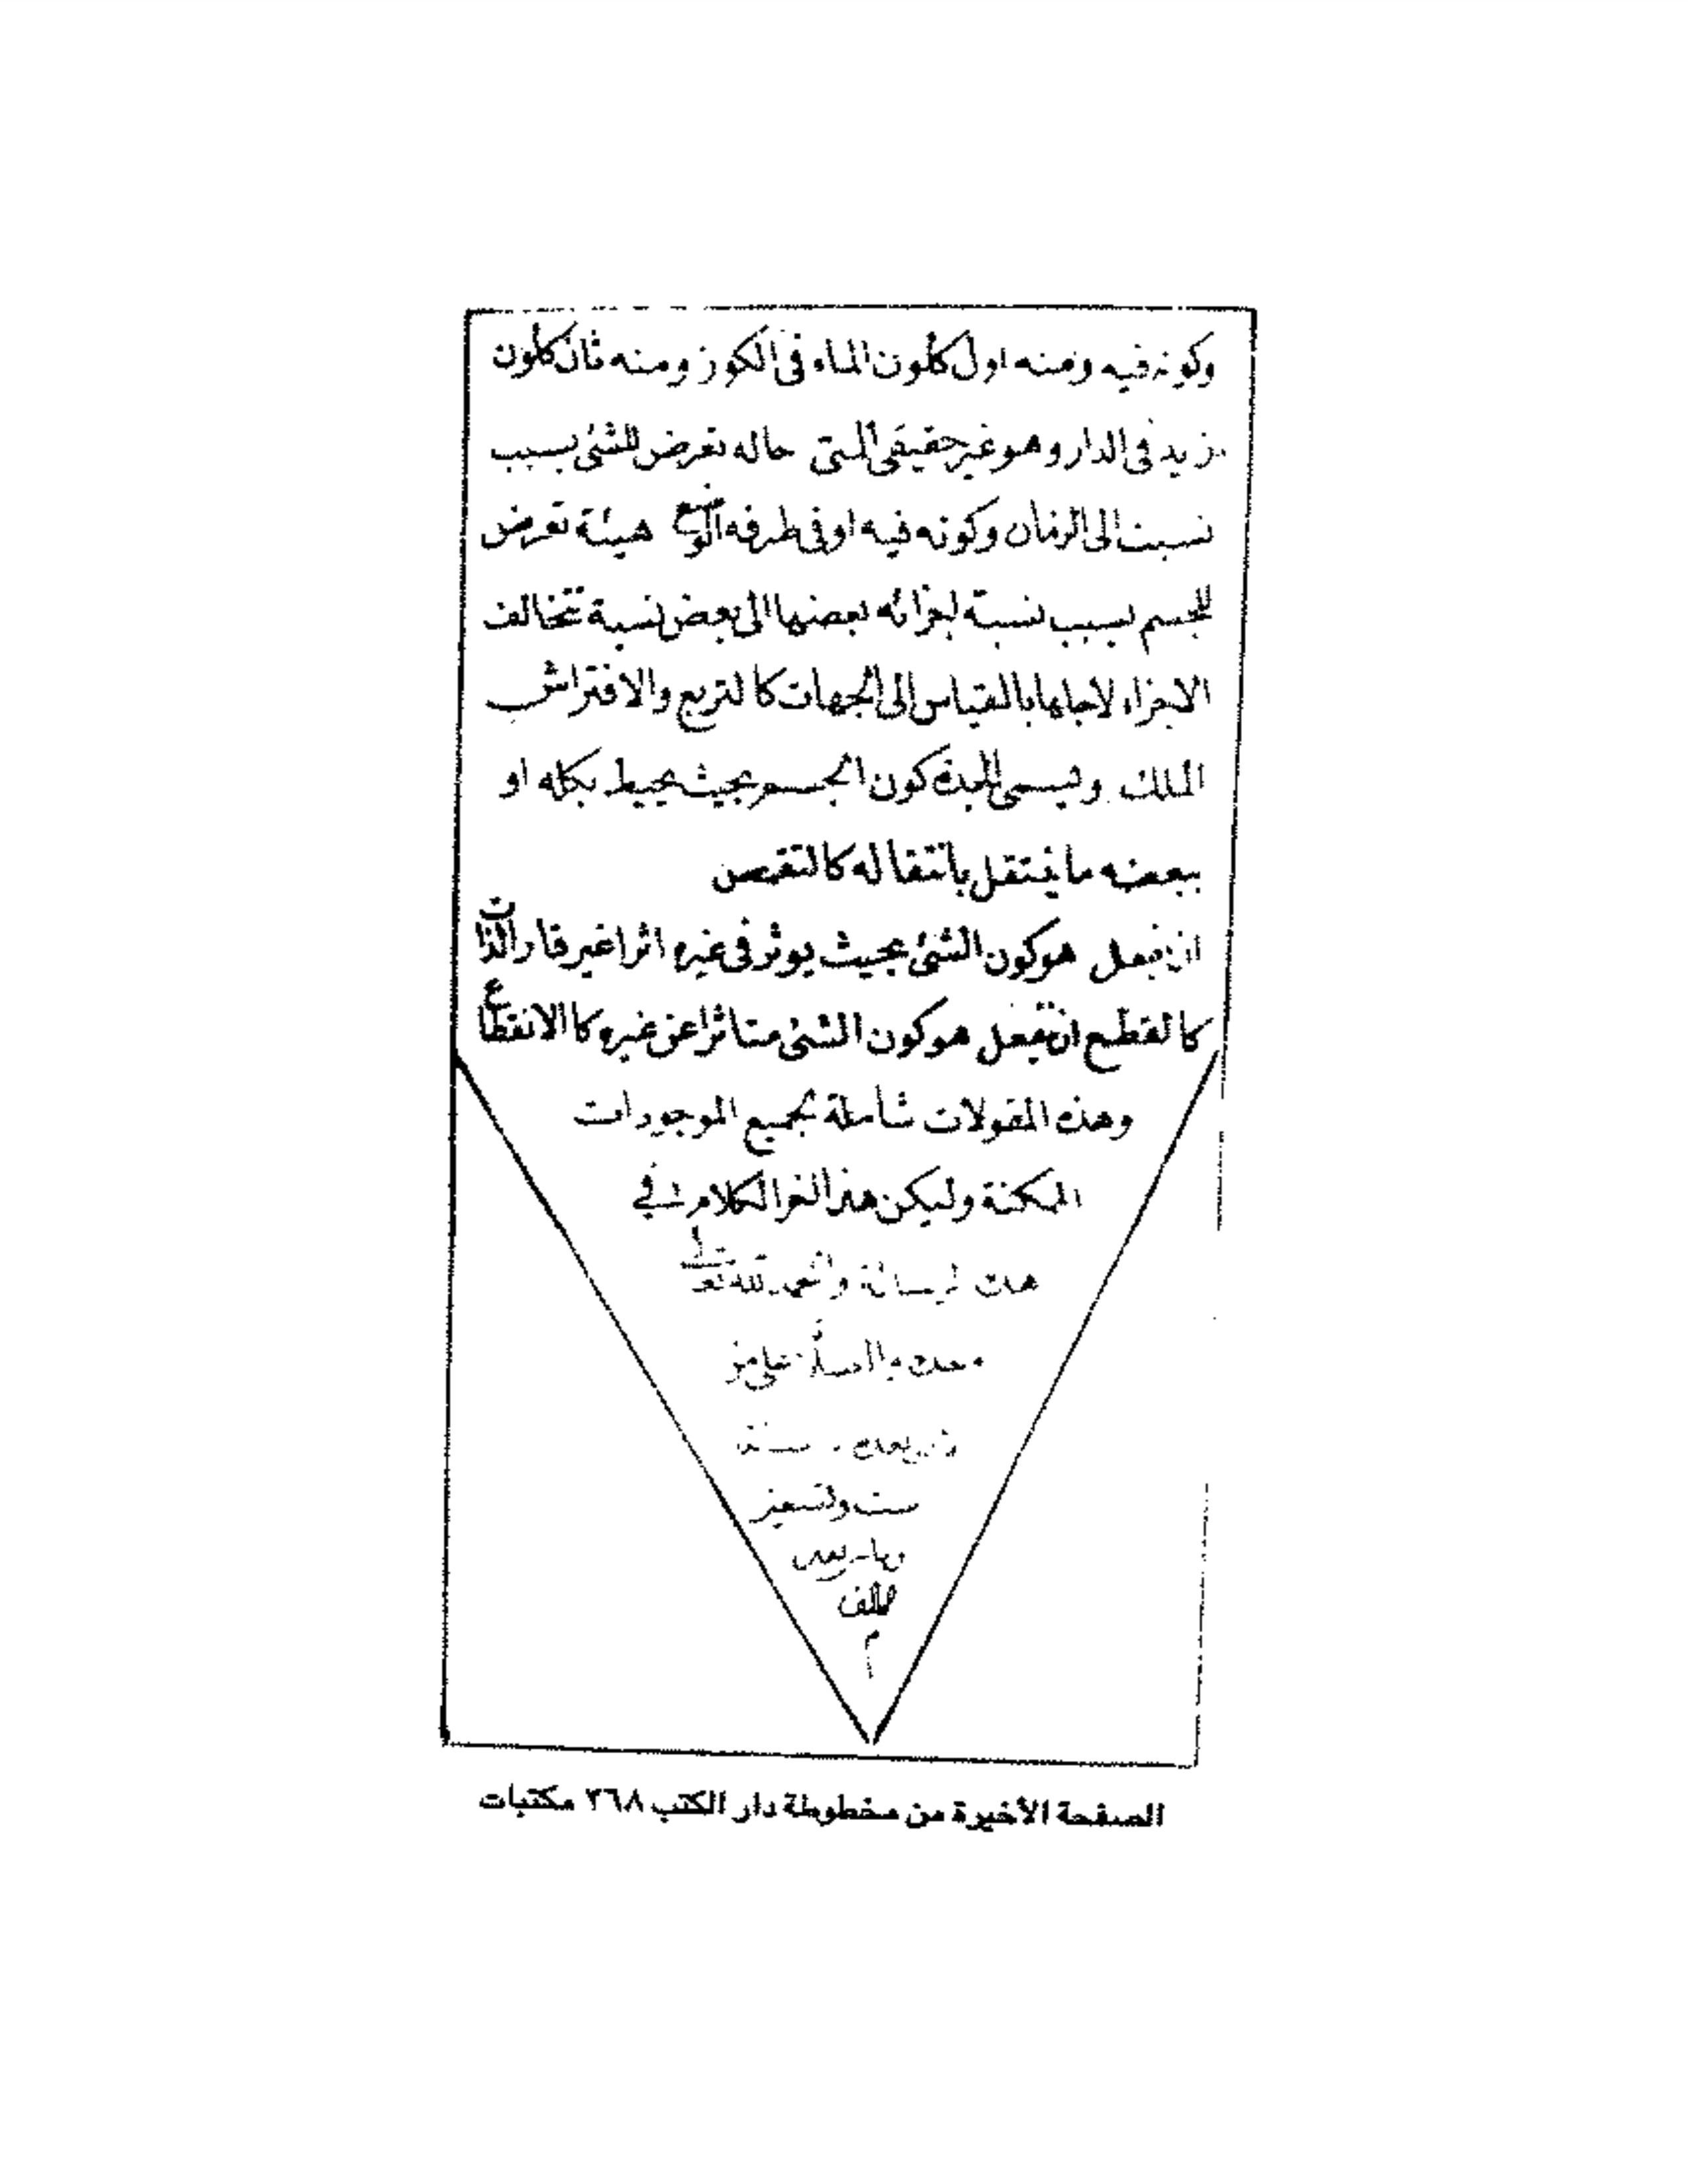 وكونه فيه ومنه اول ككون الماء فى الكوز ومنه ثان ككون
زيد فى الدار وهو غير حقيقى المتى حاله تعرض للشئ بسبب
نسبته الى الزمان وكونه فيه او فى طرفه الوضع هيئة تعرض
للجسم بسبب نسبة اجزائه بعضها الى بعض نسبة تتخالف
الاجزاء لاجلها بالقياس الى الجهات كالتربع والافتراش
الملك ويسمى الجدة كون الجسم بحيث يحيط بكله او
ببعضه ما ينتقل بانتقاله كالتقمص
ان يفعل هو كون الشئ بحيث يوثر فى غيره اثرا غير قار الذات
كالقطع ان ينفعل هو كون الشئ متاثرا عن غيره كا الانقطاع
وهذه المقولات شاملة لجميع الموجودات
الممكنة وليكن هذا اخر الكلام فى
هذه الرسالة والحمد لله تعالى
وحده والصلاة على من
بعده سنة
ست وتسعين
الف
م
الصفحة الأخيرة من مخطوطة دار الكتب ٣٦٨ مكتبات